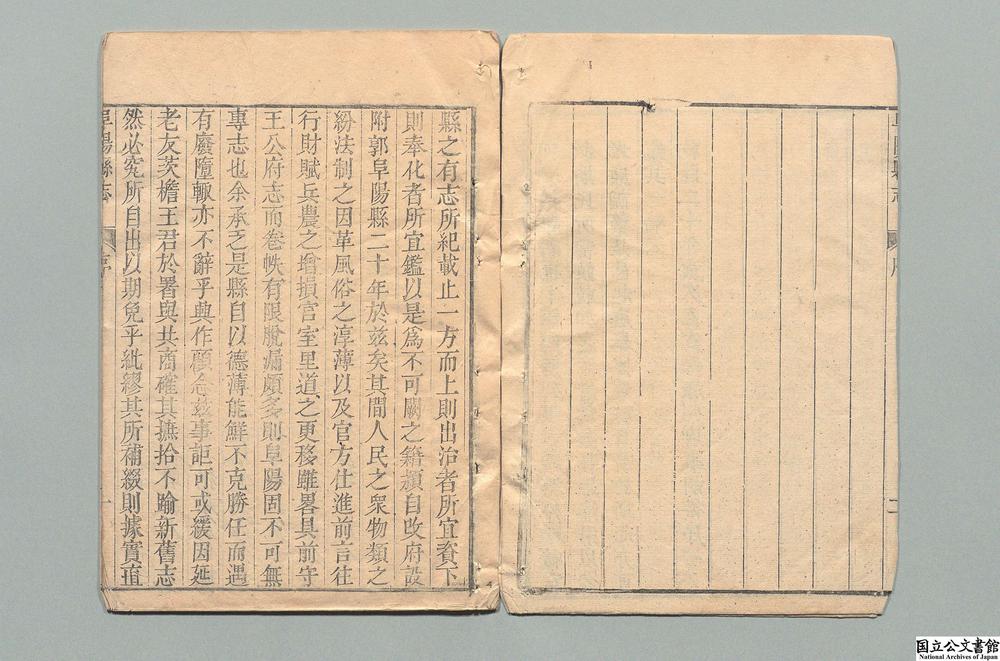 縣之有志所紀載止一方而上則出治者所宜資下
則奉化者所宜鑑以是爲不可闕之籍潁自改府設
附郭阜陽縣二十年於兹矣其間人民之衆物類之
紛法制之因革風俗之淳薄以及官方仕進前言往
行財賦兵農之增損宫室里道之更移雖畧具前守
王公府志而卷帙有限脫漏頗多則阜陽固不可無
專志也余承乏是縣自以德薄能鮮不克勝任而遇
有廢墮輙亦不辭乎興作顧念兹事詎可或緩因延
老友茨檐王君於署與共商確其摭拾不踰新舊志
然必究所自出以期免乎紕繆其所補綴則據實直
阜陽縣志
序
一
阜陽縣志
序
二
国立公文書館
National Archives of Japan